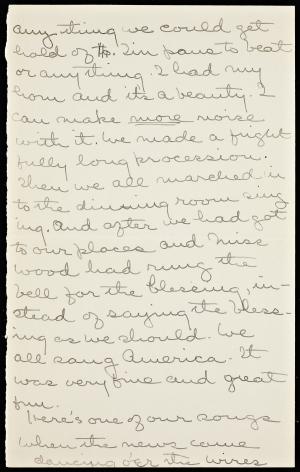 any thing we could get
hold of. Tin pans to beat
or any thing. I had my
horn and its a beauty. I
can make more noise
with it. We made a fright
fully long procession.
Then we all marched in
to the dinning room sing
ing. And after we had got
to our places and Miss
Wood had rung the
bell for the blessing, in-
stead of saying the bless-
ing as we should. We
all sang America. It
was very fine and great
fun.
Here's one of our songs
When the news came
dancing o'er the wires